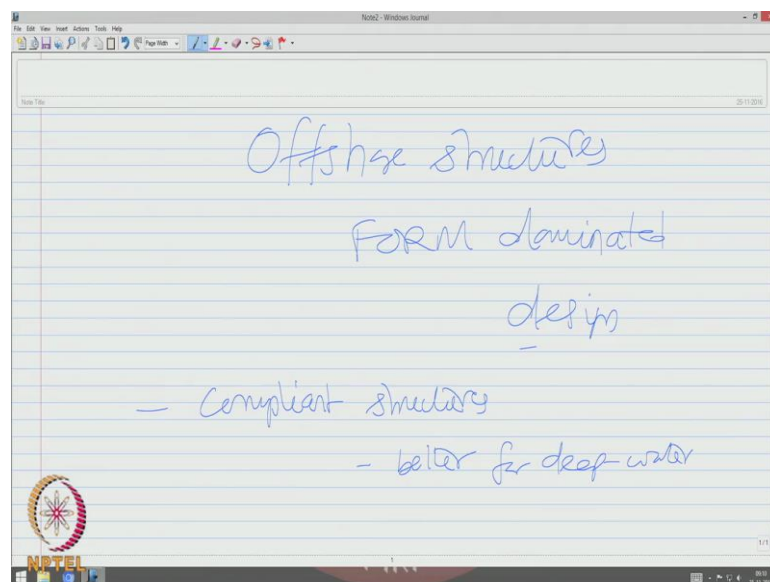 Note2 - Windows Journal
File Edit View Insert Actions Tools Help
Page Width
Note Title
25-11-2016
Offshore structures
FORM dominated
design
- Compliant structures
- better for deep-water
1/1
1
NPTEL